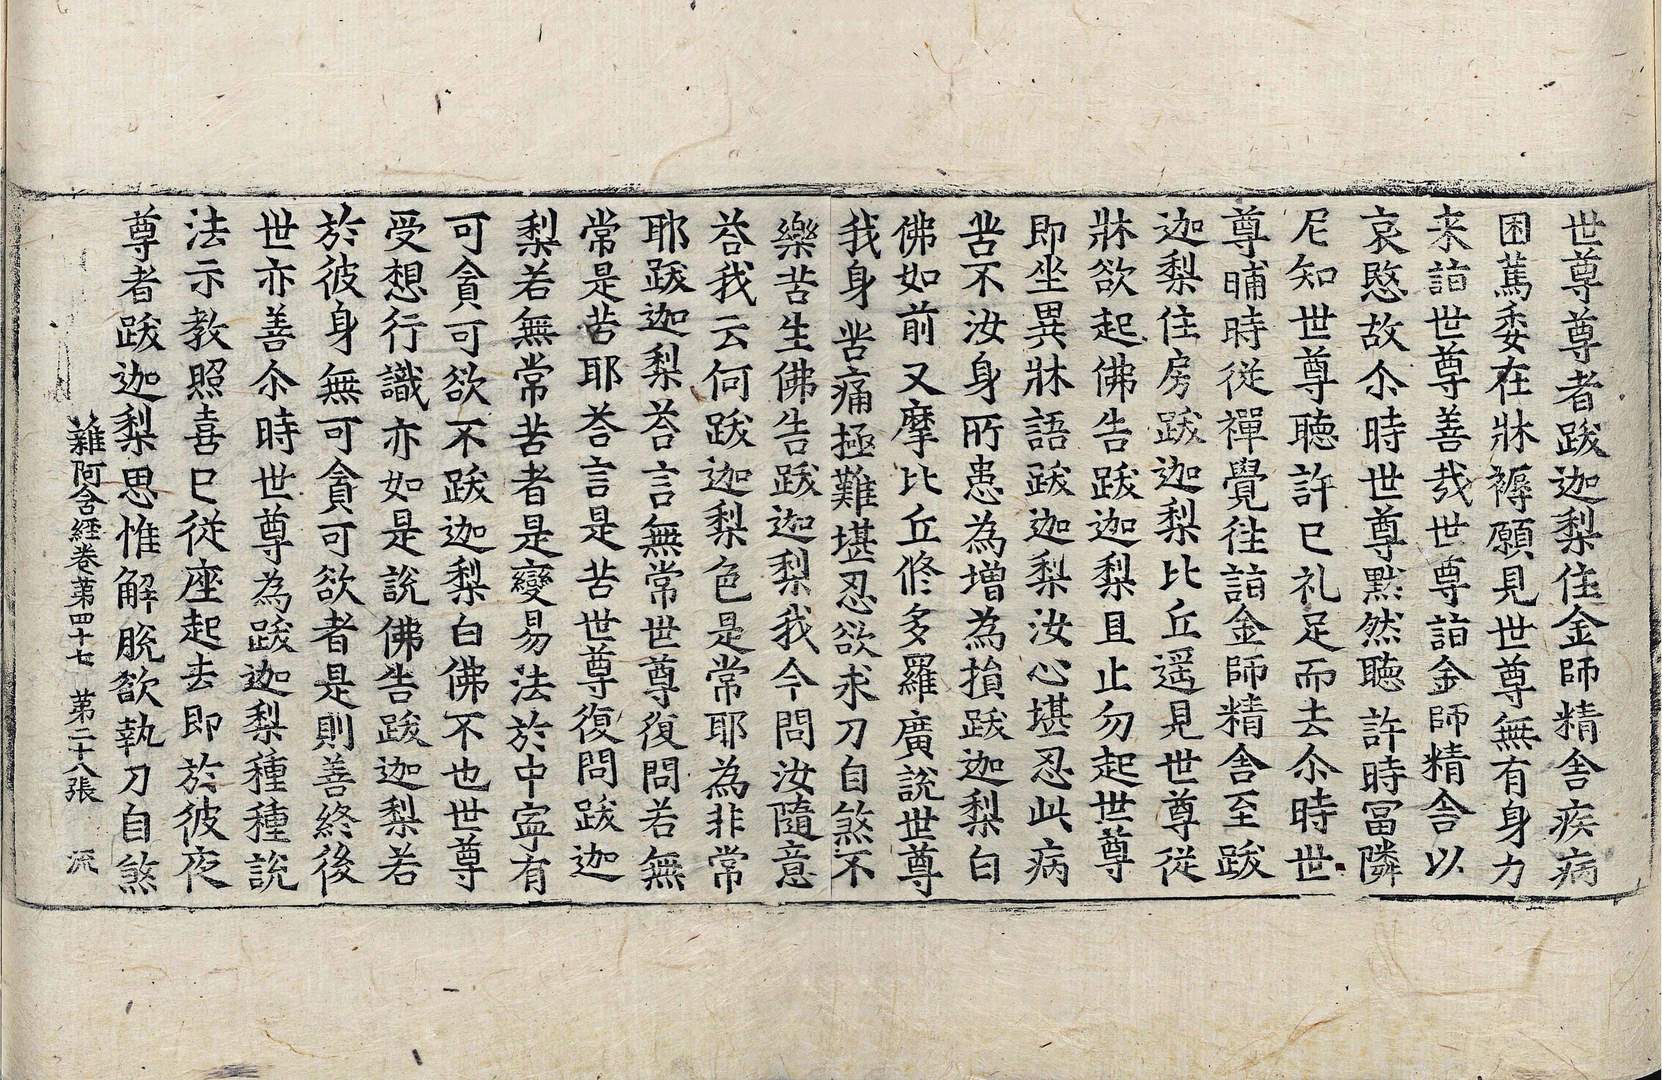 世尊尊者跋迦梨住金師精舍疾病
困萬委在牀褥願見世尊無有身力
来詣世尊善㢤世尊詣金師精舍以
哀愍故尒時世尊黙然聽許時冨隣
尼知世尊聽許已礼足而去尒時世
尊晡時從禪覺往詣金師精舍至跋
迦梨住房跋迦梨比丘遥見世尊從
牀欲起佛告跋迦梨且止勿起世尊
即坐異牀語跋迦梨汝心堪忍此病
苦不汝身所患為增為損跋迦梨白
佛如前叉摩比丘修多羅廣說世尊
我身苦痛極難堪忍欲求刀自煞不
樂苦生佛告跋迦梨我今問汝隨意
荅我云何跋迦梨色是常耶為非常
耶跋迦梨荅言無常世尊復問若無
常是苦耶荅言是苦世尊復問跋迦
梨若無常苦者是變易法於中寧有
可貪可欲不跋迦梨白佛不也世尊
受想行識亦如是說佛告跋迦梨若
於彼身無可貪可欲者是則善終後
世亦善尒時世尊為跋迦梨種種說
法示教照喜已従座起去即於彼夜
尊者跋迦梨思惟解脫欲執刀自煞
雜阿含經卷苐四十七 第二十八張 流